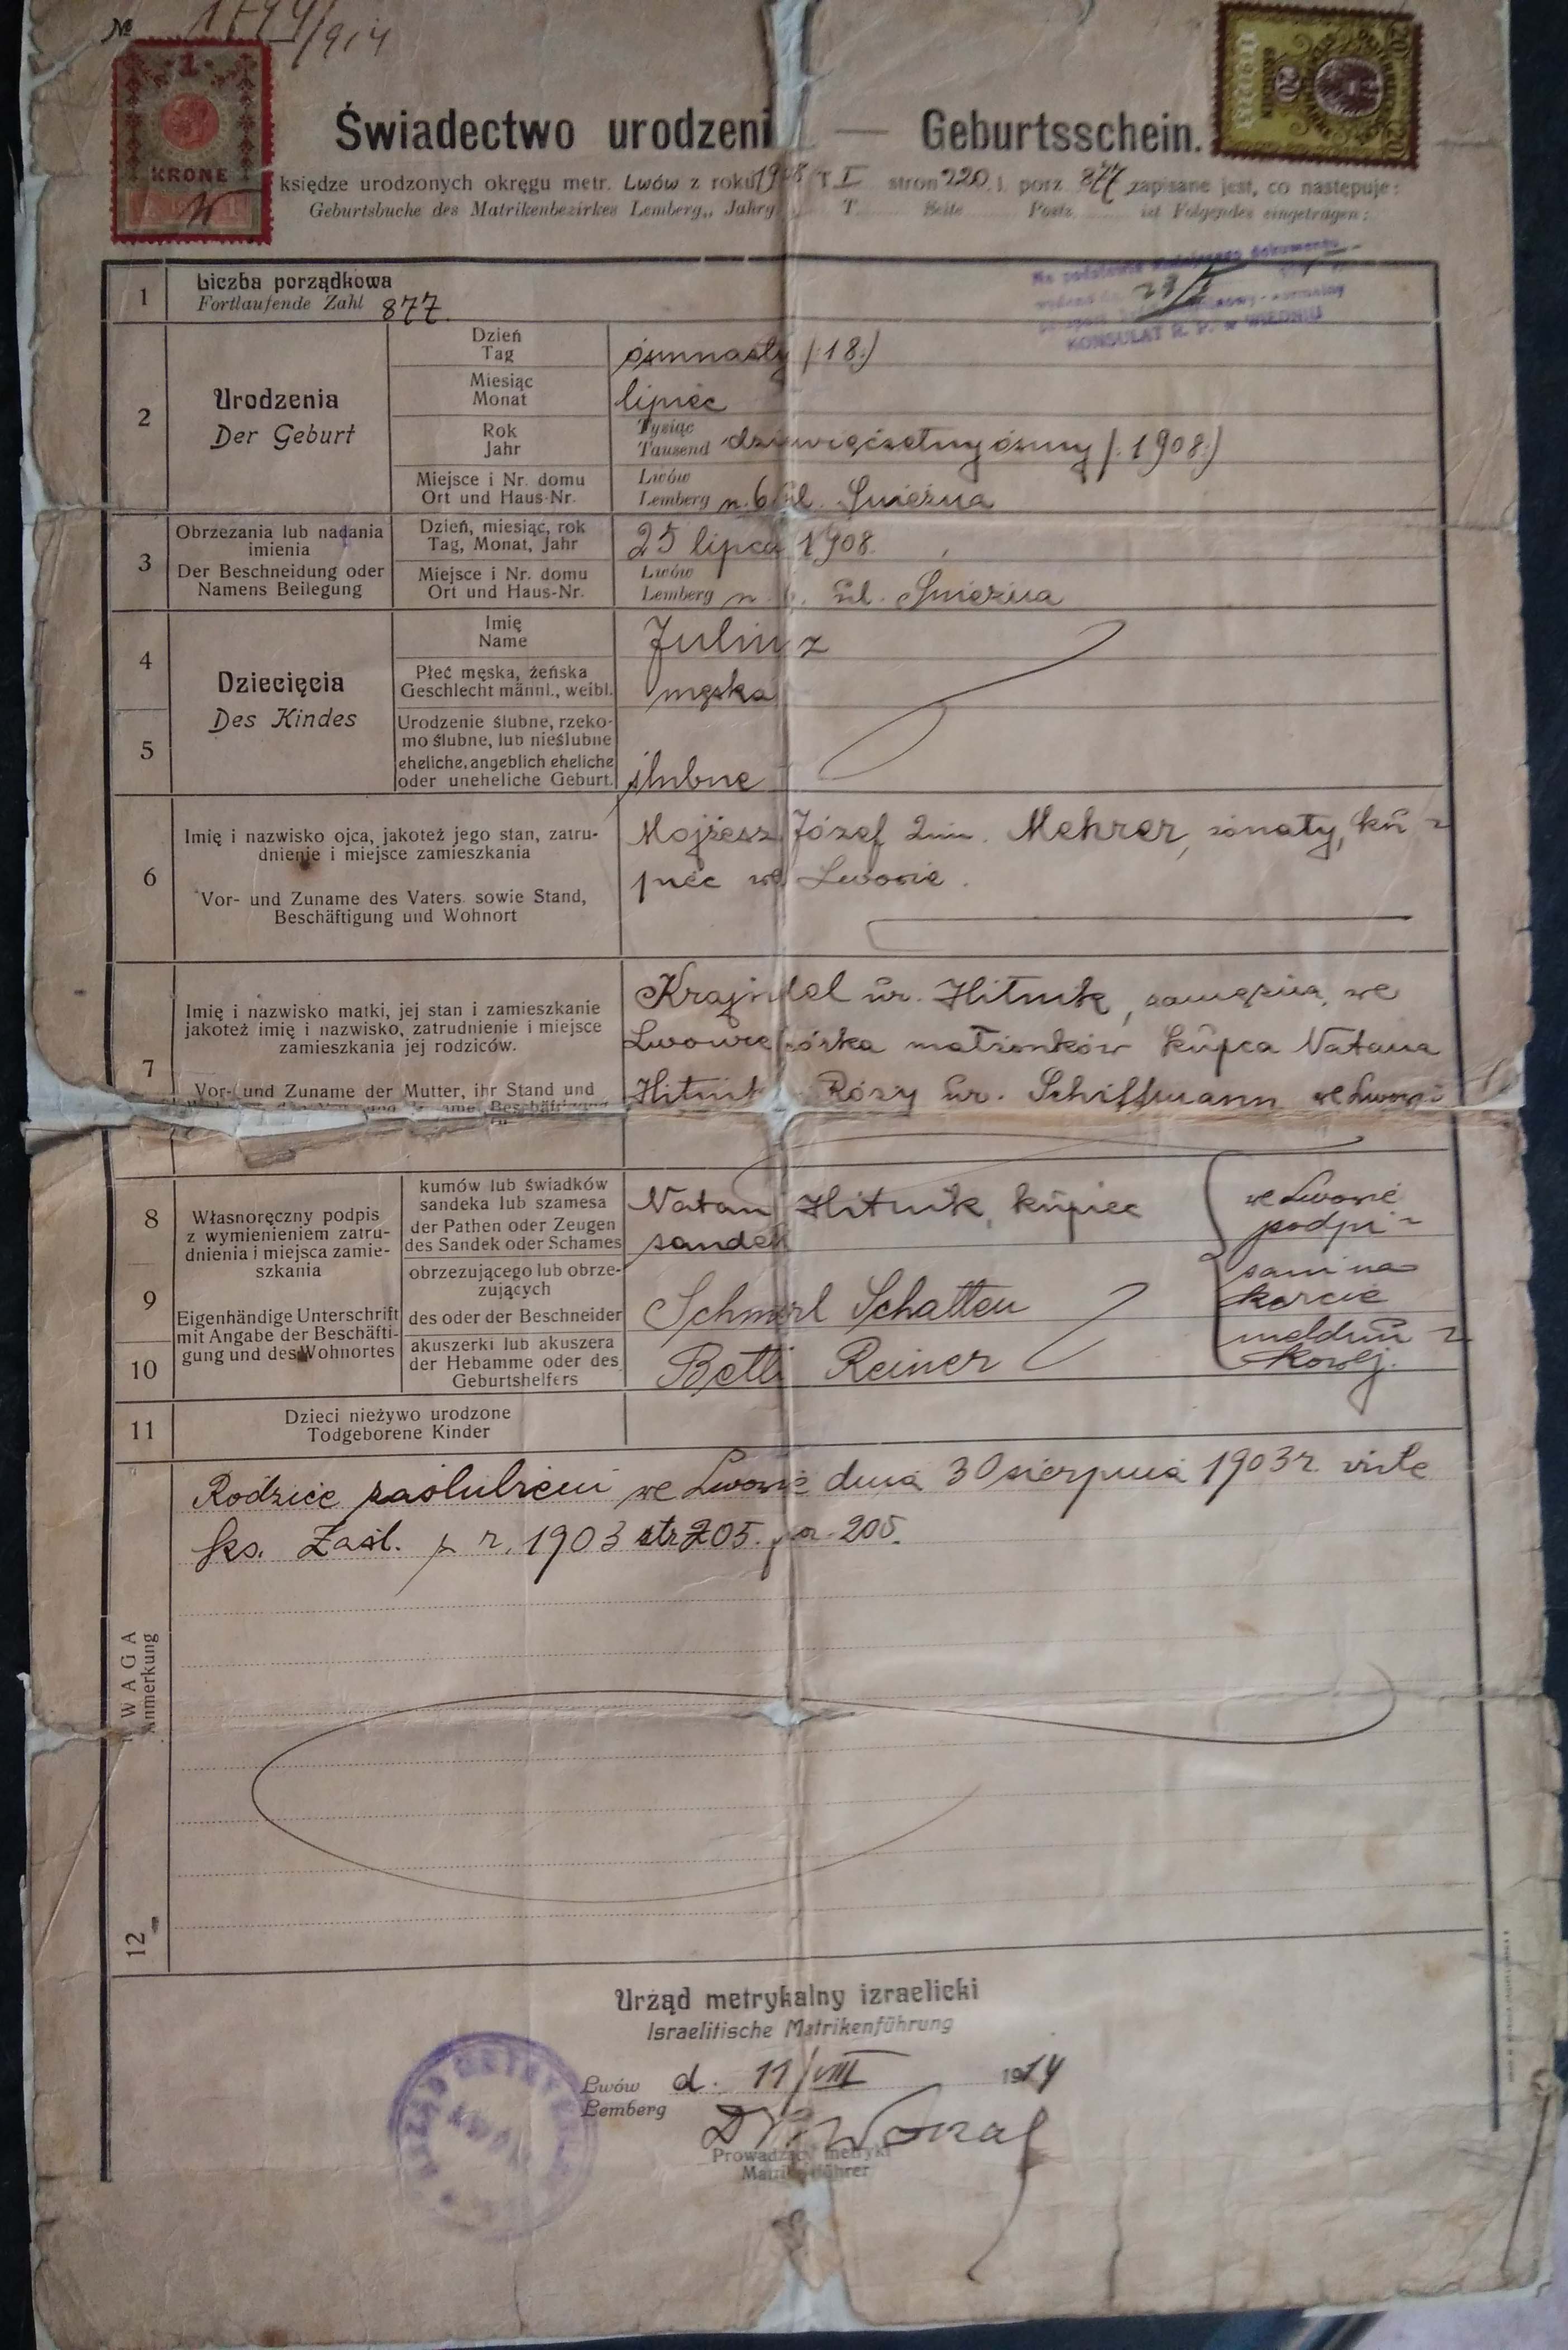 № 1744/914
1
KRONE
20
20
Świadectwo urodzeni — Geburtsschein.
księdze urodzonych okręgu metr. Lwów z roku 1908 T. I stron 220 l. porz. 877 zapisane jest, co następuje:
Geburtsbuche des Matrikenbezirkes Lemberg,, Jahrg. T. Seite Postz. ist Folgendes eingetragen:
Na podstawie niniejszego dokumentu
KONSULAT R. P. w WIEDNIU
1
Liczba porządkowa
Fortlaufende Zahl 877.
2
Urodzenia
Der Geburt
Dzień
Tag
ósmnasty (18.)
Miesiąc
Monat
lipiec
Rok
Jahr
Tysiąc
Tausend dziewięćsetny ósmy (1908.)
Miejsce i Nr. domu
Ort und Haus-Nr.
Lwów
Lemberg n. 6 ul. Śnieżna
3
Obrzezania lub nadania
imienia
Der Beschneidung oder
Namens Beilegung
Dzień, miesiąc, rok
Tag, Monat, Jahr
25 lipca 1908.
Miejsce i Nr. domu
Ort und Haus-Nr.
Lwów
Lemberg n. 6. ul. Śnieżna
4
5
Dziecięcia
Des Kindes
Imię
Name
Juliusz
Płeć męska, żeńska
Geschlecht männl., weibl.
męska
Urodzenie ślubne, rzeko-
mo ślubne, lub nieślubne
eheliche, angeblich eheliche
oder uneheliche Geburt.
ślubne
6
Imię i nazwisko ojca, jakoteż jego stan, zatru-
dnienie i miejsce zamieszkania
Vor- und Zuname des Vaters sowie Stand,
Beschäftigung und Wohnort
Mojżesz Józef 2im. Mehrer, żonaty, ku-
piec we Lwowie.
7
Imię i nazwisko matki, jej stan i zamieszkanie
jakoteż imię i nazwisko, zatrudnienie i miejsce
zamieszkania jej rodziców.
Vor- und Zuname der Mutter, ihr Stand und
Krajndel ur. Hitnik, zamężna, we
Lwowie córka małżonków kupca Natana
Hitnik Rózy ur. Schiffmann we Lwowie
8
9
10
Własnoręczny podpis
z wymienieniem zatru-
dnienia i miejsca zamie-
szkania
Eigenhändige Unterschrift
mit Angabe der Beschäfti-
gung und des Wohnortes
kumów lub świadków
sandeka lub szamesa
der Pathen oder Zeugen
des Sandek oder Schames
Natan Hitnik, kupiec
sandek
obrzezującego lub obrze-
zujących
des oder der Beschneider
Schmerl Schatten
akuszerki lub akuszera
der Hebamme oder des
Geburtshelfers
Betti Reiner
we Lwowie
podpi-
sani na
karcie
meldun-
kowej.
11
Dzieci nieżywo urodzone
Todgeborene Kinder
12
UWAGA
Anmerkung
Rodzice zaślubieni we Lwowie dnia 30 sierpnia 1903 r. vide
ks. Zaśl. z r. 1903 str 205. p. 205.
Urząd metrykalny izraelicki
Israelitische Matrikenführung
Lwów
Lemberg d. 11/VIII 1914
Prowadzący metryki
Matrikenführer